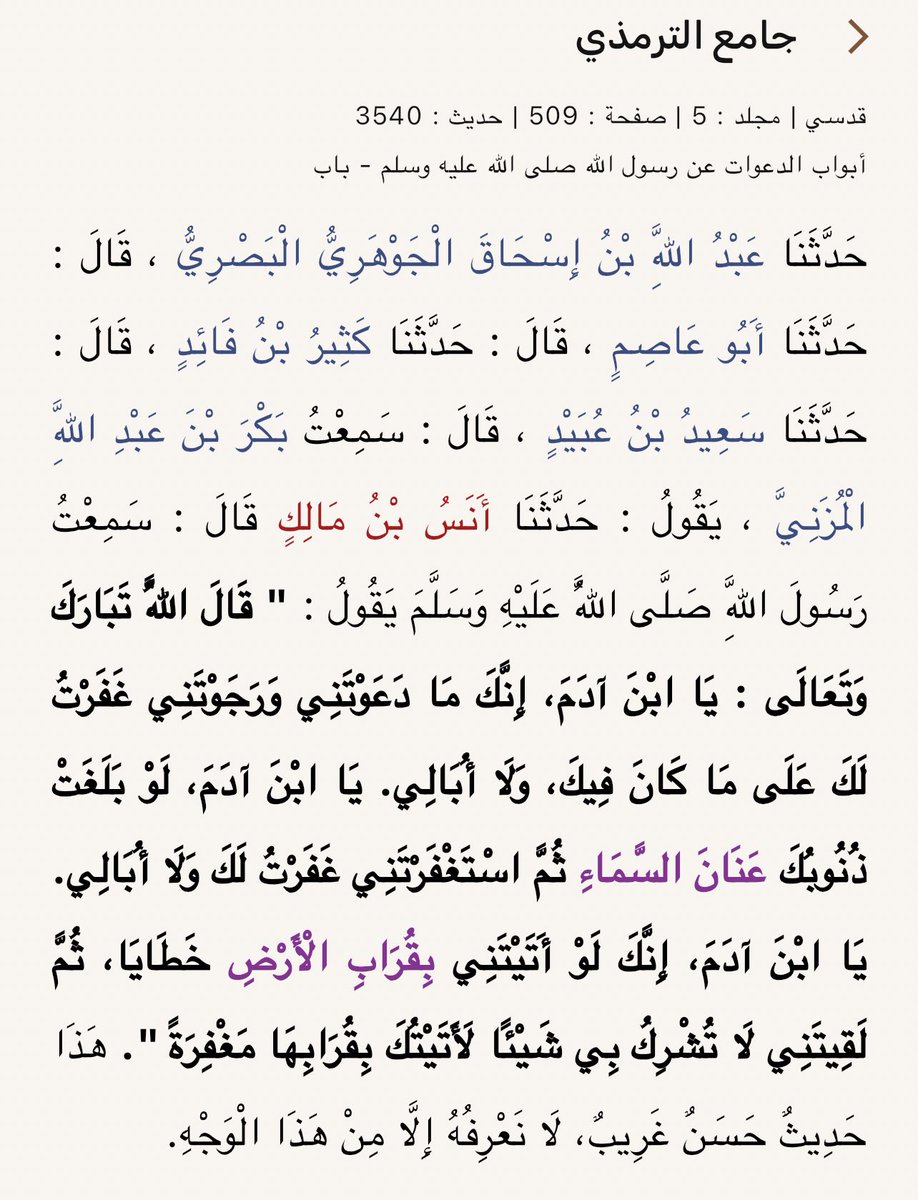 جامع الترمذي
قدسي | مجلد : 5 | صفحة : 509 | حديث : 3540
أبواب الدعوات عن رسول الله صلى الله عليه وسلم - باب
حَدَّثَنَا عَبْدُ اللَّهِ بْنُ إِسْحَاقَ الْجَوْهَرِيُّ الْبَصْرِيُّ ، قَالَ :
حَدَّثَنَا أَبُو عَاصِمٍ ، قَالَ : حَدَّثَنَا كَثِيرُ بْنُ فَائِدٍ ، قَالَ :
حَدَّثَنَا سَعِيدُ بْنُ عُبَيْدٍ ، قَالَ : سَمِعْتُ بَكْرَ بْنَ عَبْدِ اللَّهِ
الْمُزَنِيَّ ، يَقُولُ : حَدَّثَنَا أَنَسُ بْنُ مَالِكٍ قَالَ : سَمِعْتُ
رَسُولَ اللَّهِ صَلَّى اللَّهُ عَلَيْهِ وَسَلَّمَ يَقُولُ : " قَالَ اللَّهُ تَبَارَكَ
وَتَعَالَى : يَا ابْنَ آدَمَ، إِنَّكَ مَا دَعَوْتَنِي وَرَجَوْتَنِي غَفَرْتُ
لَكَ عَلَى مَا كَانَ فِيكَ، وَلَا أُبَالِي. يَا ابْنَ آدَمَ، لَوْ بَلَغَتْ
ذُنُوبُكَ عَنَانَ السَّمَاءِ ثُمَّ اسْتَغْفَرْتَنِي غَفَرْتُ لَكَ وَلَا أُبَالِي.
يَا ابْنَ آدَمَ، إِنَّكَ لَوْ أَتَيْتَنِي بِقُرَابِ الْأَرْضِ خَطَايَا، ثُمَّ
لَقِيتَنِي لَا تُشْرِكُ بِي شَيْئًا لَأَتَيْتُكَ بِقُرَابِهَا مَغْفِرَةً ". هَذَا
حَدِيثٌ حَسَنٌ غَرِيبٌ، لَا نَعْرِفُهُ إِلَّا مِنْ هَذَا الْوَجْهِ.